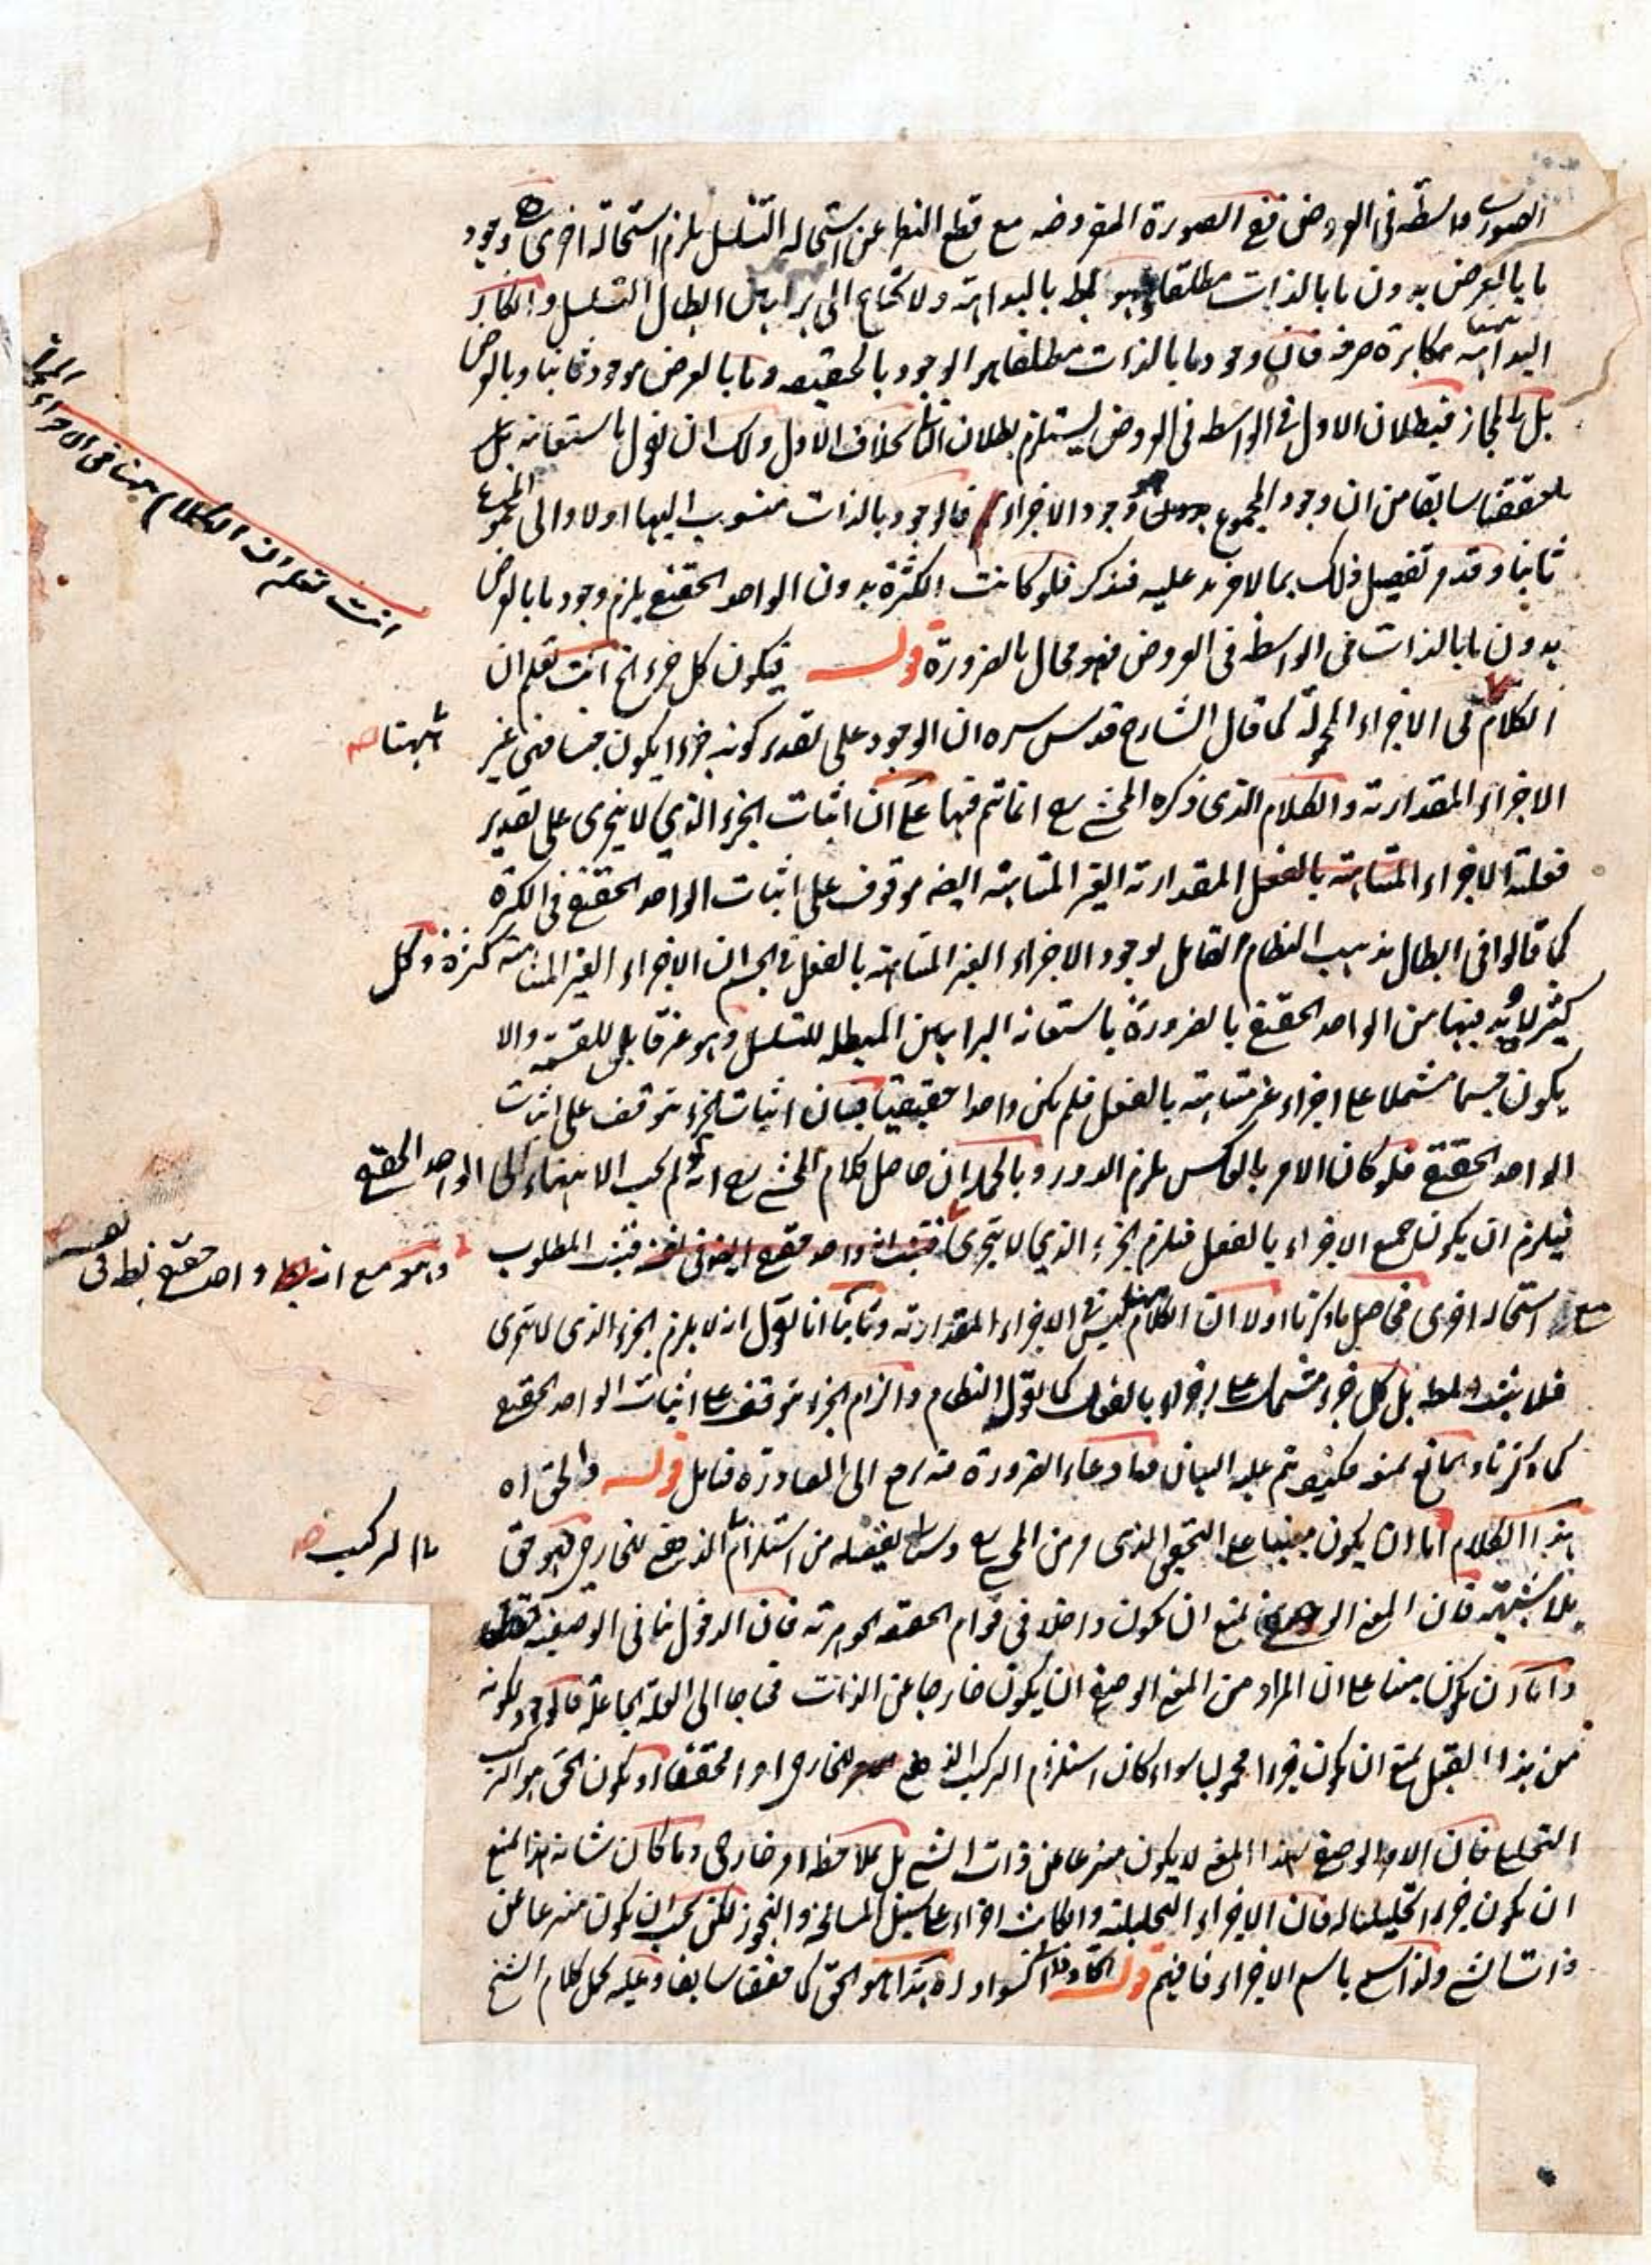 الصورة واسطة فى العروض ففى الصورة المفروضه مع قطع النظر عن استحاله التسلسل يلزم استحالة اخرى وهو وجود
ما بالعرض بدون ما بالذات مطلقا وهو بط بالبداهة ولا تحتاج الى براهين ابطال التسلسل وانكار
البداهة مكابرة صرفه فان وجود ما بالذات مطلقا هو الوجود بالحقيقه وما بالعرض موجود ثانيا وبالعرض
بل بالمجاز فبطلان الاول فى الواسطه فى العروض يستلزم بطلان الثانى بخلاف الاول ولك ان تقول باستعانه
ما حققنا سابقا من ان وجود المجموع وجود الاجزاء فالوجود بالذات منسوب اليها اولا والى المجموع
ثانيا وقد مر تفصيل ذلك بما لا مزيد عليه فتذكر فلو كانت الكثرة بدون الواحد الحقيقى يلزم وجود ما بالعرض
بدون ما بالذات فى الواسطه فى العروض فهو محال بالضرورة قوله فيكون كل جزء الخ انت تعلم ان
الكلام فى الاجزاء المحمولة كما قال الشارح قدس سره ان الوجود على تقدير كونه جزءا يكون جنسا فهى غير
الاجزاء المقدارية والكلام الذى ذكره المحشى رح انما تم فيها على ان اثبات الجزء الذي لا يتجزى على تقدير
فعلية الاجزاء المتناهية بالفعل المقدارية الغير المتناهية ايضه موقوف على اثبات الواحد الحقيقى فى الكثرة
كما قالوا فى ابطال مذهب النظام القائل بوجود الاجزاء الغير المتناهية بالفعل فى الجسم ان الاجزاء الغير المتناهية كثرة وكل
كثير لا بد فيها من الواحد الحقيقى بالضرورة باستعانه البراهين المبطله للتسلسل وهو غير قابل للقسمة والا
يكون جسما مشتملا على اجزاء غير متناهية بالفعل فلم يكن واحدا حقيقيا فبان ان اثبات الجزء متوقف على اثبات
الواحد الحقيقى فلو كان الامر بالعكس يلزم الدور وبالجملة ان حاصل كلام المحشى رح انه لو لم يجب الانتهاء الى الواحد الحقيقى
فيلزم ان يكون جميع الاجزاء بالفعل فيلزم الجزء الذي لا يتجزى فثبت انه واحد حقيقى ايضه فى نفسه فثبت المطلوب
مع استحاله اخرى فحاصل ما ذكرنا اولا ان الكلام ههنا ليس فى الاجزاء المقدارية وثانيا انا نقول انه لا يلزم الجزء الذى لا يتجزى
فلا يثبت المط بل كل جزء مشتمل على اجزاء بالفعل كما يقول النظام والزام الجزء متوقف على اثبات الواحد الحقيقى
كما ذكرنا والمانع يمنعه فكيف يتم عليه البيان فادعاء الضرورة فيه يرجع الى المصادرة فتامل قوله والحق اه
هذا الكلام اما ان يكون مبنيا على التحقيق الذى مر من المحشى رح وسياتى تفصيله من استلزام الذهنى للخارجى فهو حق
بلا شبهة فان المعنى الوصفى يمنع ان يكون داخلا فى قوام الحقيقه الجوهرية فان الدخول ينافى الوصفية
واما ان يكون مبنيا على ان المراد من المعنى الوصفى ان يكون خارجا عن الذات محتاجا الى العلة الجاعلة فالوجود لكونه
من هذا القبيل يمنع ان يكون جزءا محمولا سواء كان استلزام التركيب الذهنى للخارجى امرا محققا او يكون الحق هو التركيب
التحليلى فان الامر الوصفى بهذا المعنى لا يكون منتزعا عن ذات الشئ بل بملاحظة امر خارجى وما كان شانه هذا يمنع
ان يكون جزءا تحليليا له فان الاجزاء التحليلية وان كانت اجزاء على سبيل المسامحة والتجوز لكن يجب ان يكون منتزعا عن
ذات الشئ ولذا سمى باسم الاجزاء فافهم قوله السواد اه هذا هو الحق كما حققنا سابقا وعليه يحمل كلام الشيخ
انت تعلم ان الكلام ههنا فى الاجزاء
ههنا صح
وهو مع انه واحد حقيقى بط فى نفسه
التركيب صح